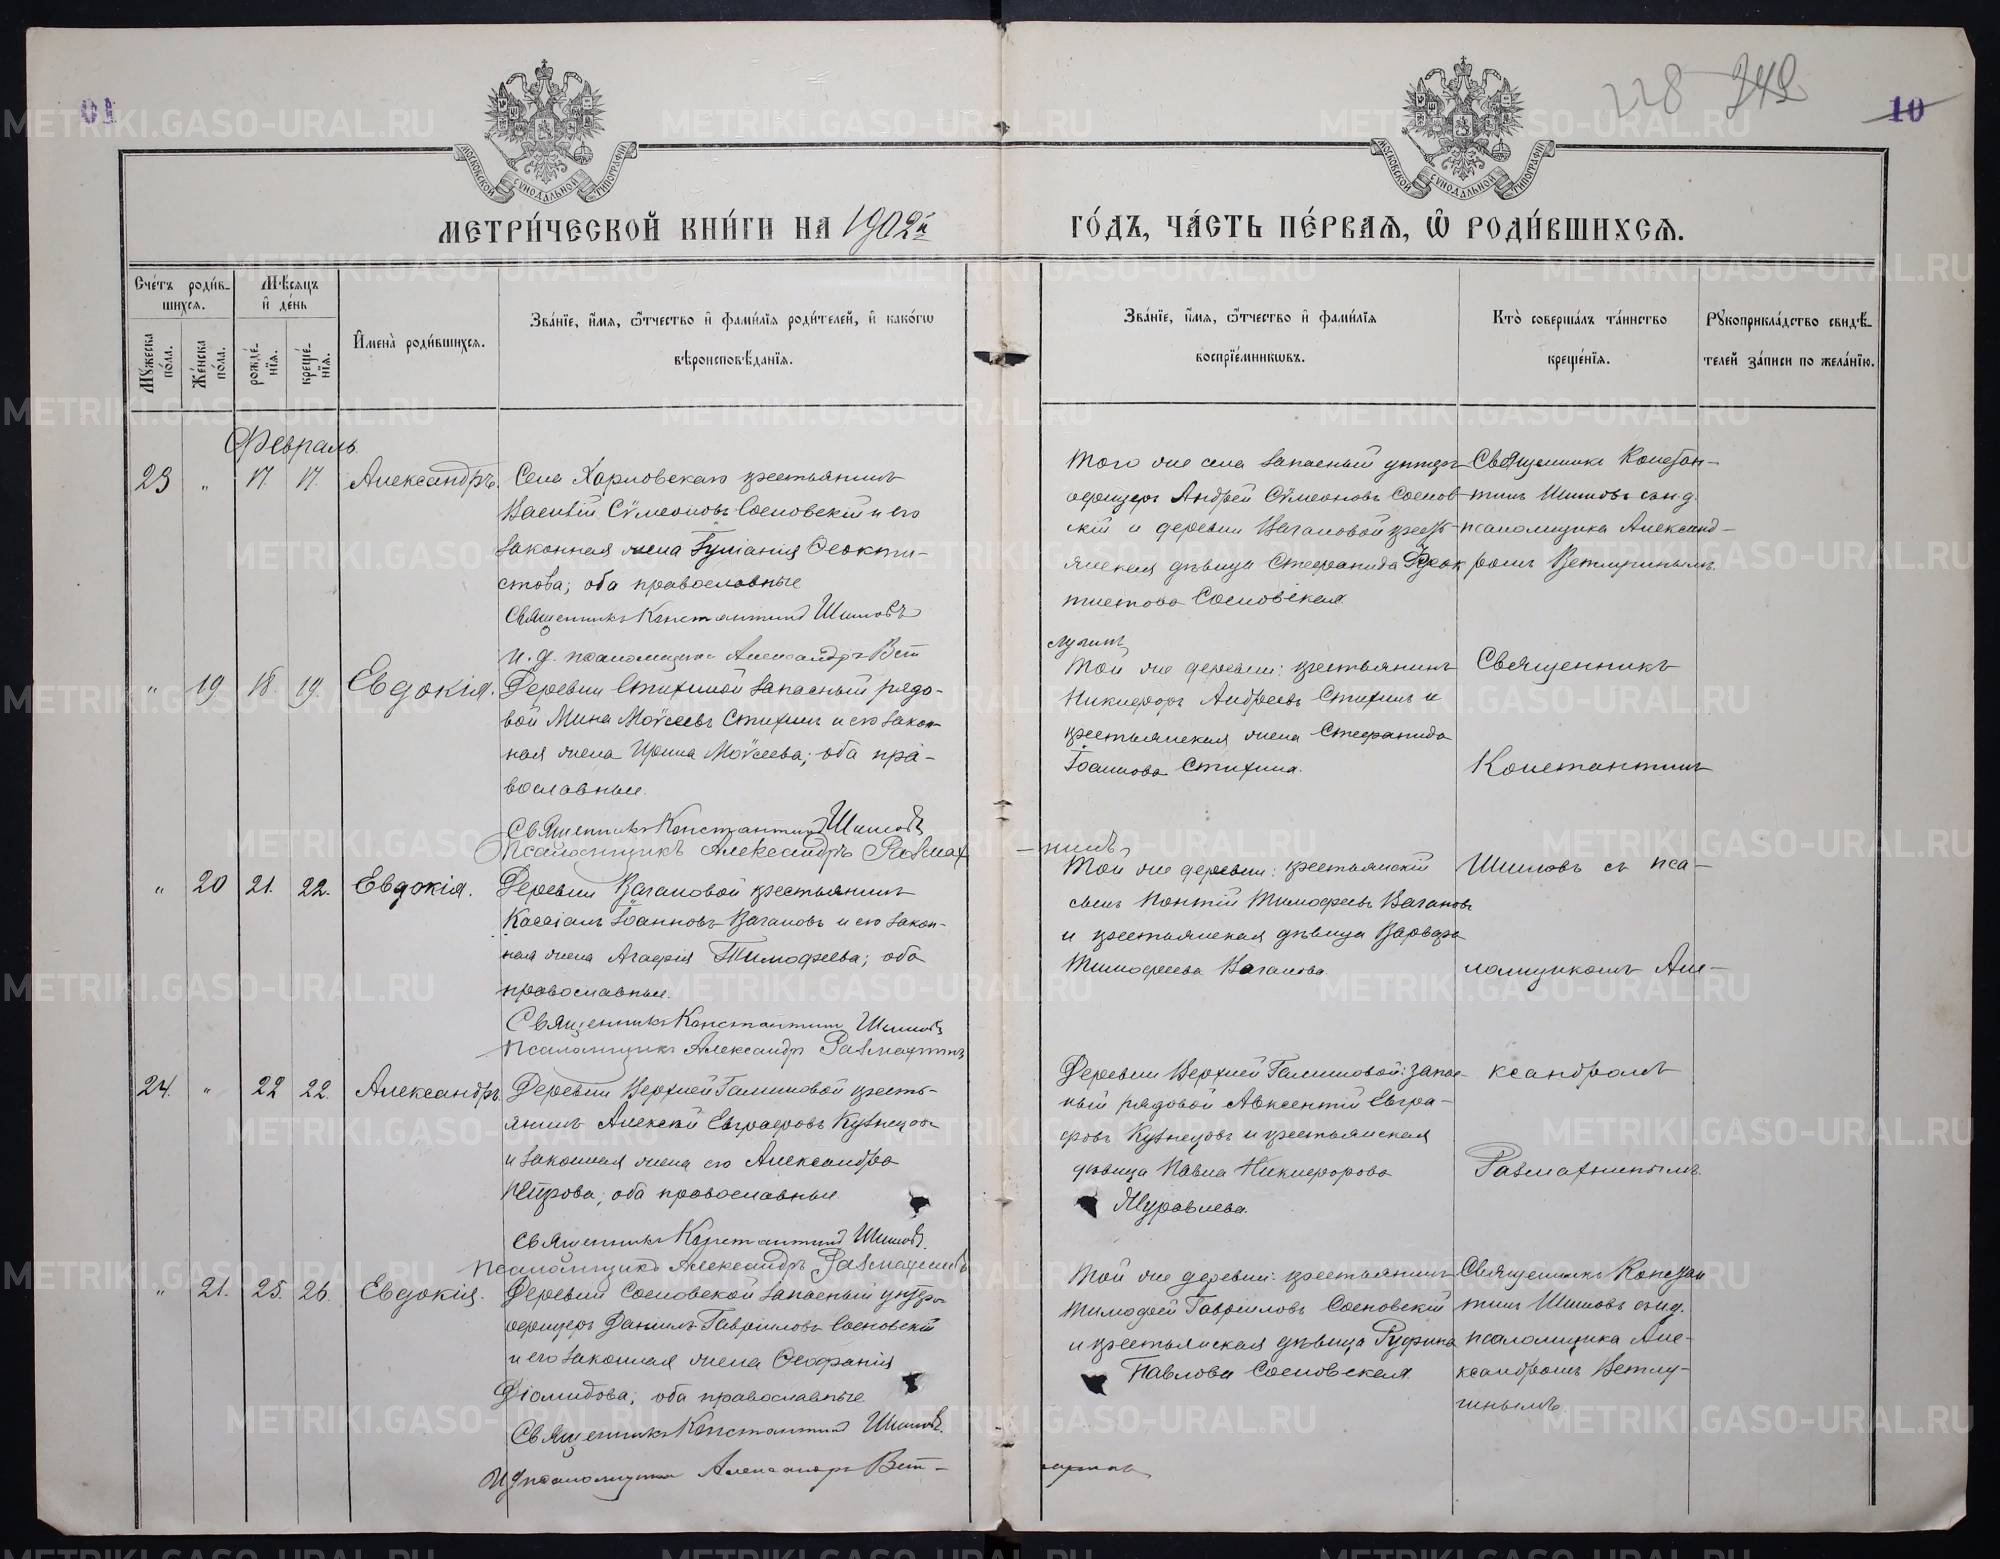 01
228 242
10
МОСКОВСКОЙ СУНОДАЛЬНОЙ ТИПОГРАФІИ
МОСКОВСКОЙ СУНОДАЛЬНОЙ ТИПОГРАФІИ
МЕТРИ́ЧЕСКОЙ КНИ́ГИ НА 1902й
ГО́ДЪ, ЧА́СТЬ ПЕ́РВАѦ, Ѽ РОДИ́ВШИХСѦ.
Сче́тъ роди́в-
шихсѧ.
Мꙋ́жеска по́ла.
Же́нска по́ла.
Мѣ́сѧцъ и҆ де́нь
рожде́-нїѧ.
креще́-нїѧ.
И҆мена̀ роди́вшихсѧ.
Зва́нїе, и҆́мѧ, ѻ҆́тчество и҆ фами́лїѧ роди́телей, и҆ како́гѡ
вѣроисповѣ́данїѧ.
Зва́нїе, и҆́мѧ, ѻ҆́тчество и҆ фами́лїѧ
воспрїе́мникѡвъ.
Кто̀ соверша́лъ та́инство
креще́нїѧ.
Рꙋкоприкла́дство свидѣ́-
телей за́писи по жела́нїю.
Февраль
23 „ 17. 17. Александръ.
Села Харловскаго крестьянинъ
Василій Сѵмеоновъ Сосновскій и его
законная жена Іуліанія Ѳеокти-
стова; оба православные
Священникъ Константинъ Шишовъ
и. д. псаломщика Александръ Вет
лугинъ
Того же села запасный унтеръ
офицеръ Андрей Сѵмеоновъ Соснов
скій и деревни Вагановой кресть-
янская дѣвица Стефанида Ѳеок
тистова Сосновская.
Священникъ Констан-
тинъ Шишовъ съ и.д.
псаломщика Александ-
ромъ Ветлугинымъ.
„ 19 18. 19. Евдокія.
Деревни Стихиной запасный рядо-
вой Мина Моѵсеевъ Стихинъ и его закон-
ная жена Ирина Моѵсеева; оба пра-
вославные.
Священникъ Константинъ Шишовъ
Псаломщикъ Александръ Размах
-нинъ
Той же деревни: крестьянинъ
Никифоръ Андреевъ Стихинъ и
крестьянская жена Стефанида
Іоаннова Стихина.
Священникъ
Константинъ
„ 20 21. 22. Евдокія.
Деревни Вагановой крестьянинъ
Кассіанъ Іоанновъ Вагановъ и его закон-
ная жена Агафія Тимофеева; оба
православные.
Священникъ Константинъ Шишовъ
Псаломщикъ Александръ Размахнинъ
Той же деревни: крестьянскій
сынъ Понтій Тимофеевъ Вагановъ
и крестьянская дѣвица Варвара
Тимофеева Ваганова.
Шишовъ съ пса-
ломщикомъ Але-
24. „ 22 22. Александръ.
Деревни Верхней Галишовой кресть-
янинъ Алексѣй Евграфовъ Кузнецовъ
и законная жена его Александра
Петрова; оба православные.
Священникъ Константинъ Шишовъ.
Псаломщикъ Александръ Размахнинъ
Деревни Верхней Галишовой: запас
ный рядовой Авксентій Евгра-
фовъ Кузнецовъ и крестьянская
дѣвица Павла Никифорова
Муравьева.
ксандромъ
Размахнинымъ.
„ 21. 25. 26. Евдокія.
Деревни Сосновской запасный унтеръ
офицеръ Даніилъ Гавріиловъ Сосновскій
и его законная жена Ѳеофанія
Діомидова; оба православные
Священникъ Константинъ Шишовъ.
И.д. псаломщика Александръ Вет-
лугинъ
Той же деревни: крестьянинъ
Тимофей Гавріиловъ Сосновскій
и крестьянская дѣвица Руфина
Павлова Сосновская.
Священникъ Констан
тинъ Шишовъ съ и.д.
псаломщика Але-
ксандромъ Ветлу-
гинымъ.
METRIKI.GASO-URAL.RU